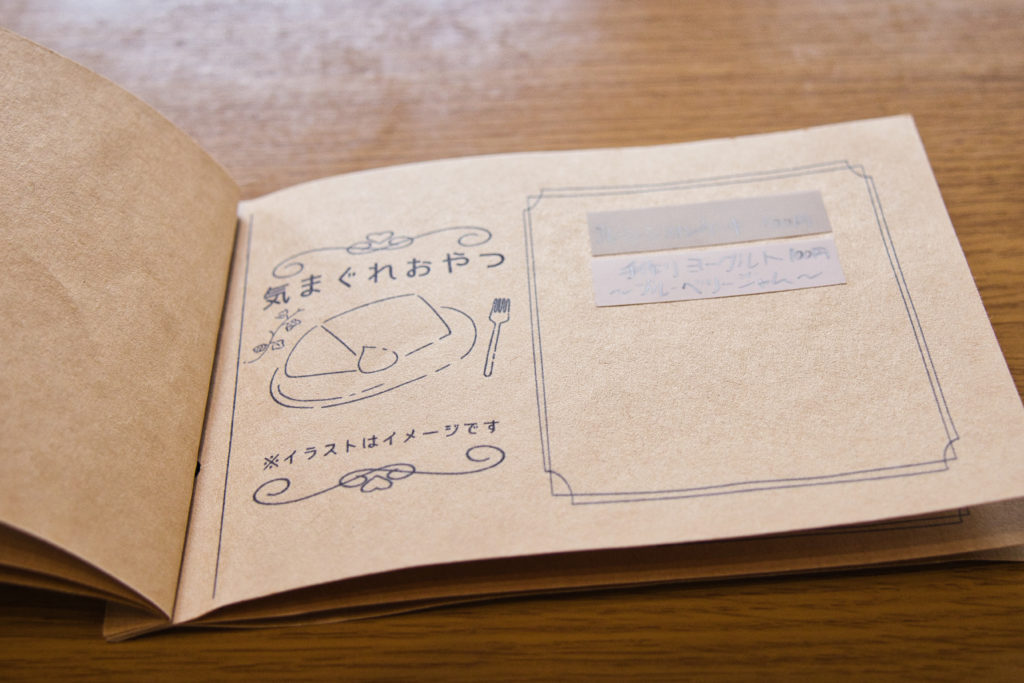 気まぐれおやつ
※イラストはイメージです
100円
手作りヨーグルト 100円
～ブルーベリージャム～